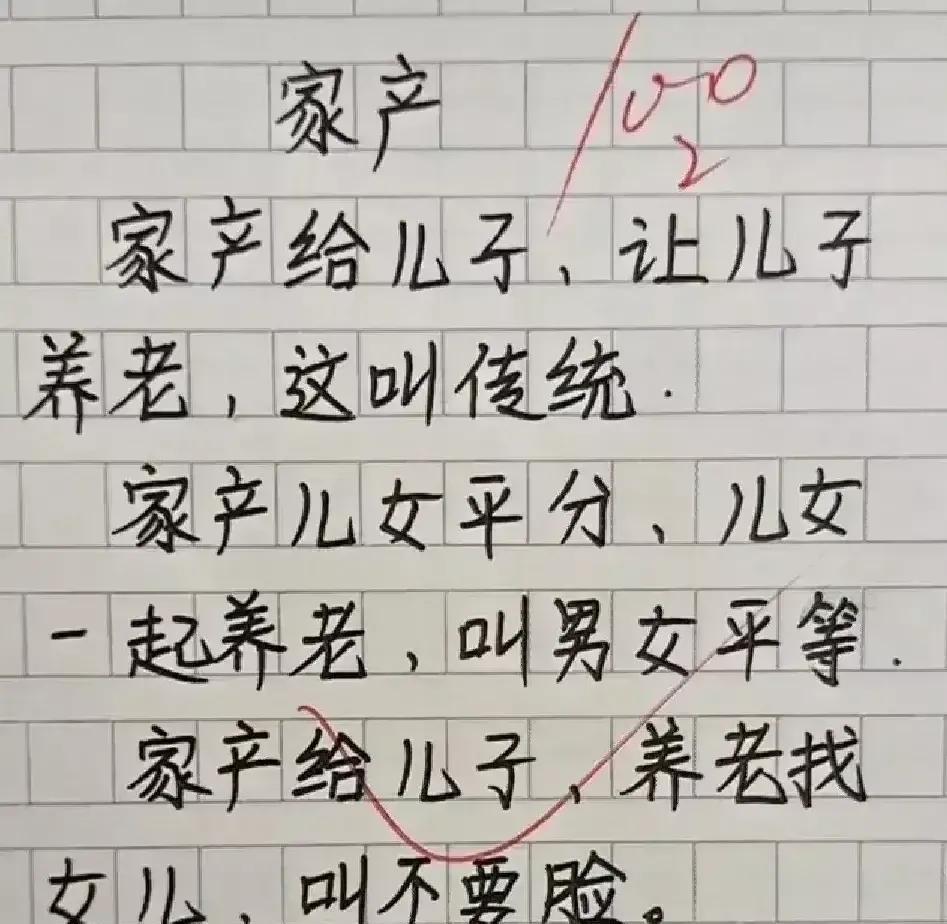 家产
100
2
家产给儿子、让儿子
养老,这叫传统.
家产儿女平分、儿女
一起养老,叫男女平等.
家产给儿子、养老找
女儿、叫不要脸。